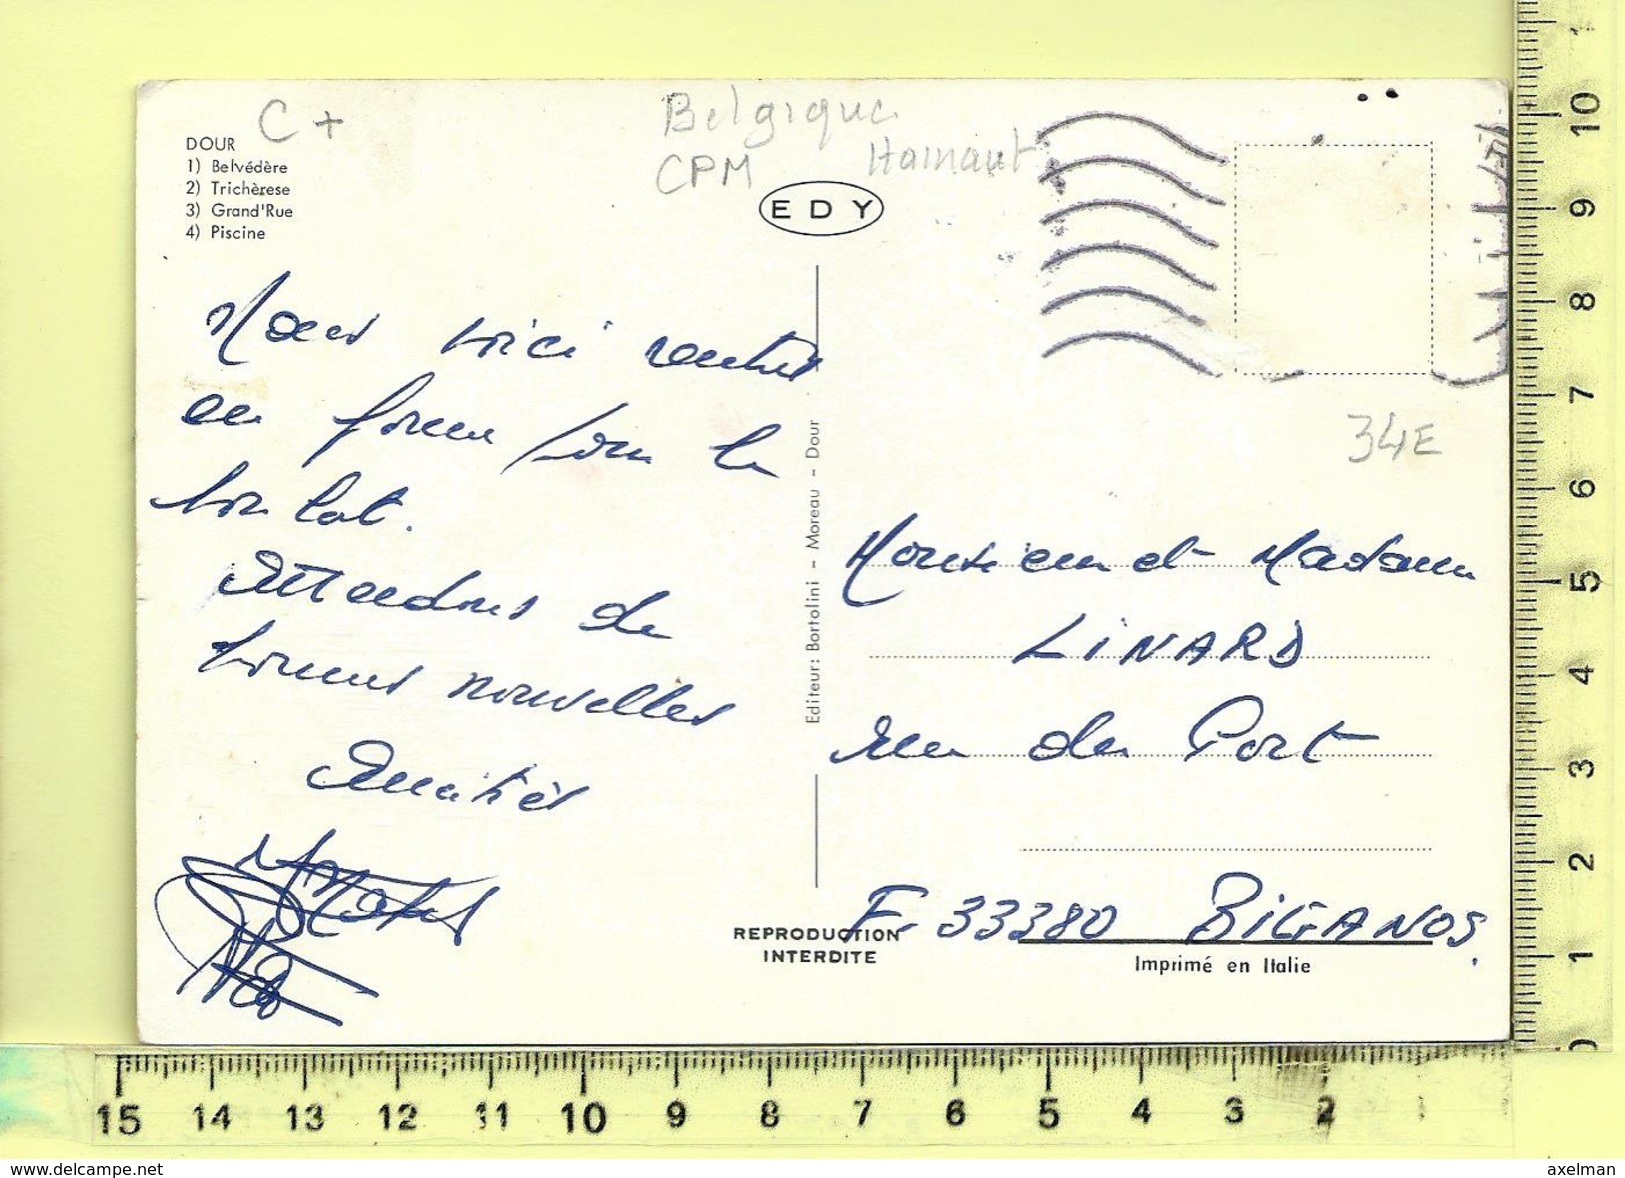 C +
Belgique
CPM Hainaut
DOUR
1) Belvédère
2) Trichèrese
3) Grand'Rue
4) Piscine
EDY
Nous voici rentrés
en forme sous le
bon toit.
Attendons de
bonnes nouvelles
Amitiés
Editeur: Bortolini - Moreau - Dour
34E
Monsieur et Madame
LINARD
rue du Port
F. 33380 BIGANOS.
REPRODUCTION
INTERDITE
Imprimé en Italie
10
9
8
7
6
5
4
3
2
1
15 14 13 12 11 10 9 8 7 6 5 4 3 2
www.delcampe.net
axelman